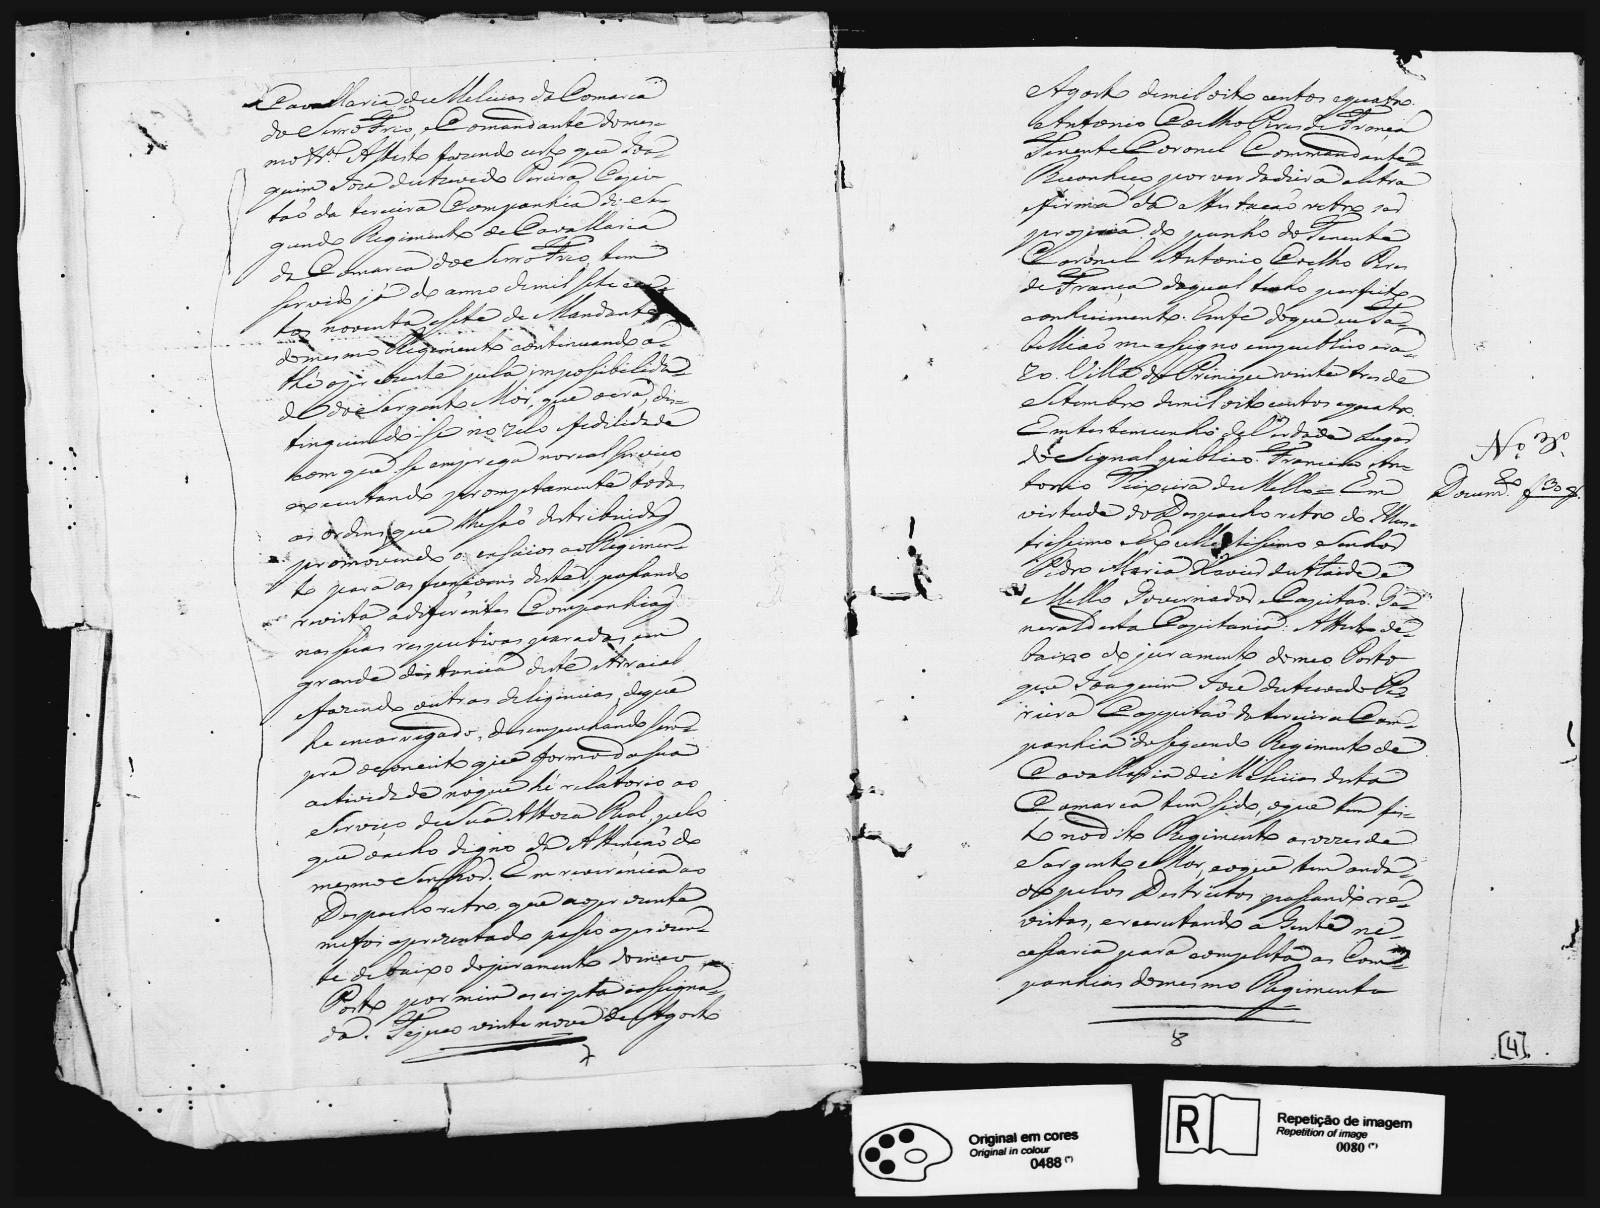 Cavallaria de Melicias da Comarca
do Serro Frio, e Comandante do mes-
mo &ª. Attesto fazendo certo que Joa-
quim Joze de Azevedo Pereira Capi-
taõ da terceira Companhia do Se-
gundo Regimento de Cavallaria
da Comarca do Serro Frio, tem
servido já do anno de mil sete cen-
tos noventa e sete de Mandante
do mesmo Regimento continuando a-
thé o prezente pela impossibelida-
de do Sargento Mór, que o era, dis-
tinguindo-se no zelo e fedilidade
com que se emprega no real serviço
executando promptamente todas
as ordens que lhe saõ destribuidas
promovendo os ensaios ao Regimen-
to para as funçoens deste, passando
revista a diferentes Companhias
nas suas respectivas paradas em
grande distancia deste Arraial
e fazendo outras deligencias, de que
he encarregado, desempenhando sem-
pre o conceito que formo da sua
actividade no que hé relatorio ao
Serviço de Sua Alteza Real, pelo
que o acho digno da Attençaõ do
mesmo Senhor. Em reverencia ao
Despacho retro, que a o prezente
me foi aprezentado passo a prezen-
te debaixo do juramento do meo
Posto por mim escripta e assigna-
da. Tejuco vinte nove de Agosto
7
Agosto de mil oito centos e quatro.
Antonio Coelho Peres de França
Tenente Coronel Commandante=
Reconheço por verdadeira a letra
e firma da Attestaçaõ retro ser
propria do punho do Tenente
Coronel Antonio Coelho Peres
de França do qual tenho perfeito
conhecimento. Em fé do que eu Ta-
balliaõ me assigno em publico e ra-
zo. Villa do Principe vinte tres de
Setembro de mil oito centos e quatro.
Em testemunho de Verdade Lugar
do Signal publico. Francisco An-
tonio Teixeira de Mello= Em
virtude do Despacho retro do Illus-
trissimo e Excellentissimo Senhor
Pedro Maria Xavier de Ataide e
Mello Governador e Capitaõ Ge-
neral desta Capitania: Attesto de-
baixo do juramento do meo Posto
que Joaquim Joze de Azevedo Pe-
reira Cappitaõ da terceira Com-
panhia do segundo Regimento de
Cavallaria de Milicias desta
Comarca tem sido, e que tem fei-
to no dito Regimento as vezes de
Sargento Mor, e o que tem anda-
do pelos Destrictos passando re-
vistas, e recrutando a Gente ne-
cessaria para completar as Com-
panhias do mesmo Regimento
8
Nº. 3º.
Docum.to f 30 g.
[4]
Original em cores
Original in colour
0488 (*)
R
Repetição de imagem
Repetition of image
0080 (*)